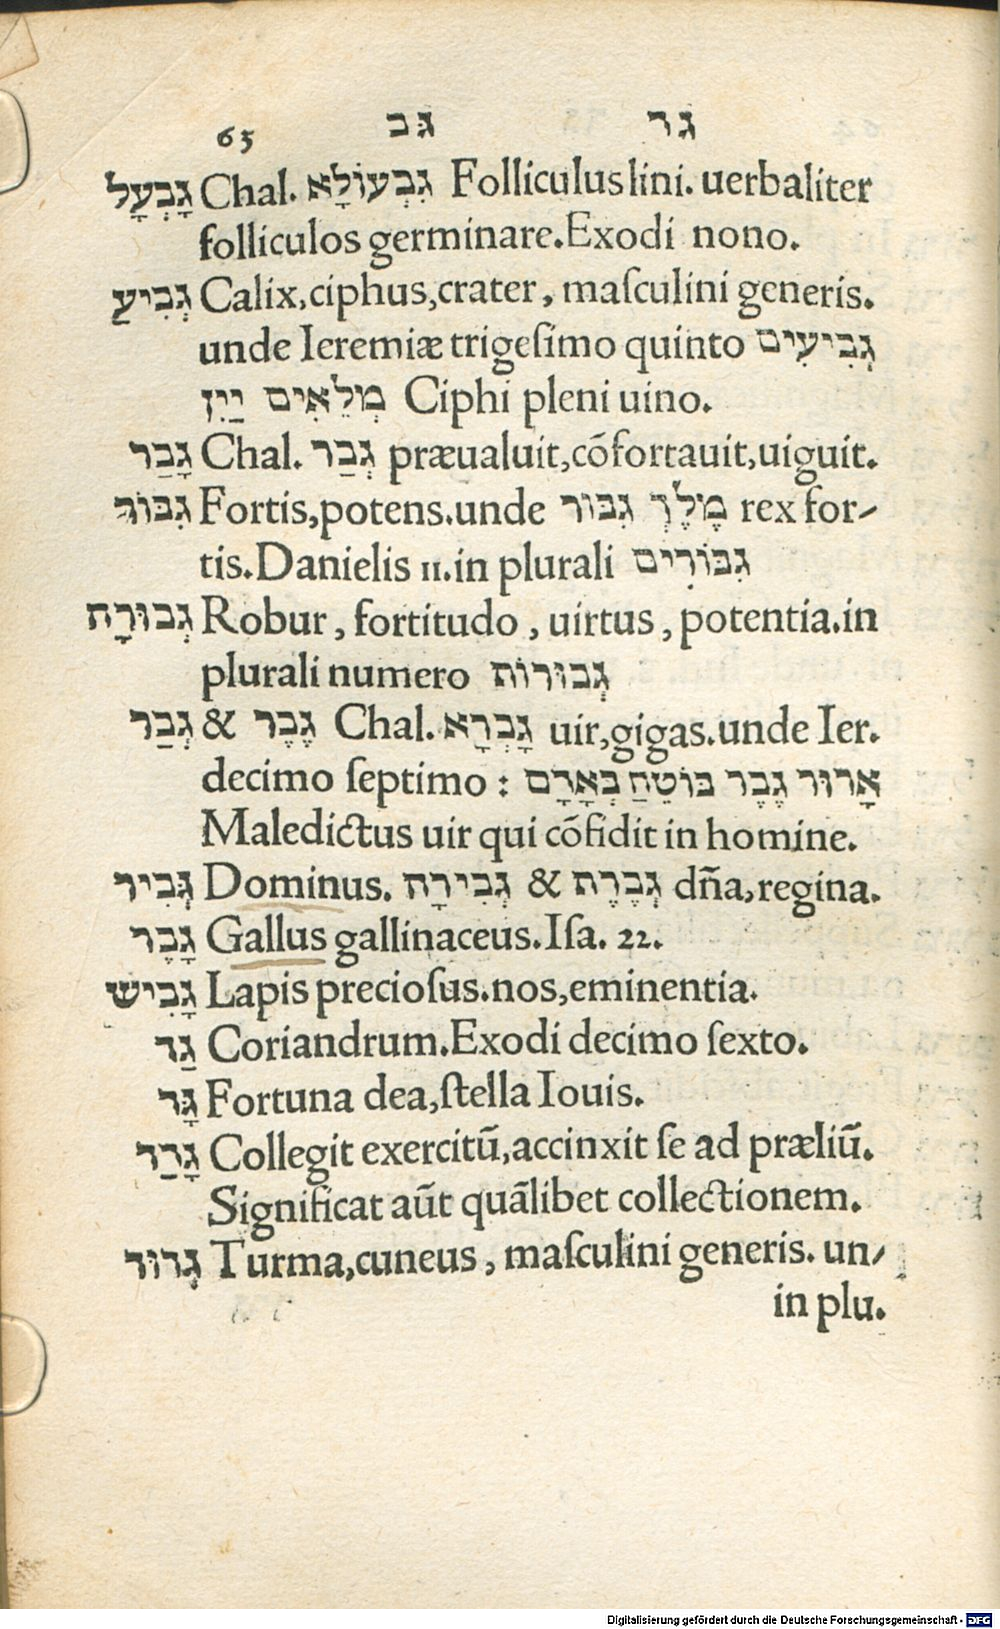 65 גב גד
גָבְעָל Chal. גִבְעוֹלָא Folliculus lini. uerbaliter
folliculos germinare. Exodi nono.
גְבִיעַ Calix, ciphus, crater, maſculini generis.
unde Ieremiæ trigeſimo quinto גְבִיעִים
מְלֵאִים יַיִן Ciphi pleni uino.
גָבַר Chal. גְבַר præualuit, cõfortauit, uiguit.
גִבּוֹר Fortis, potens. unde מֶלֶךְ גִבּוֹר rex for-
tis. Danielis 11. in plurali גִבּוֹרִים
גְבוּרָה Robur, fortitudo, uirtus, potentia. in
plurali numero גְבוּרוֹת
גְבַר & גֶבֶר Chal. גָבְרָא uir, gigas. unde Ier.
decimo ſeptimo : אָרוּר גֶבֶר בּוֹטֵחַ בְּאָדָם
Maledictus uir qui cõfidit in homine.
גְּבִיר Dominus. גְבִירָה & גְבֶרֶת dña, regina.
גָבֶר Gallus gallinaceus. Iſa. 22.
גָבִיש Lapis precioſus. nos, eminentia.
גַד Coriandrum. Exodi decimo ſexto.
גָּד Fortuna dea, ſtella Iouis.
גָדַד Collegit exercitũ, accinxit ſe ad præliũ.
Significat aũt quãlibet collectionem.
גְדוּד Turma, cuneus, maſculini generis. un-
in plu.
Digitalisierung gefördert durch die Deutsche Forschungsgemeinschaft - DFG